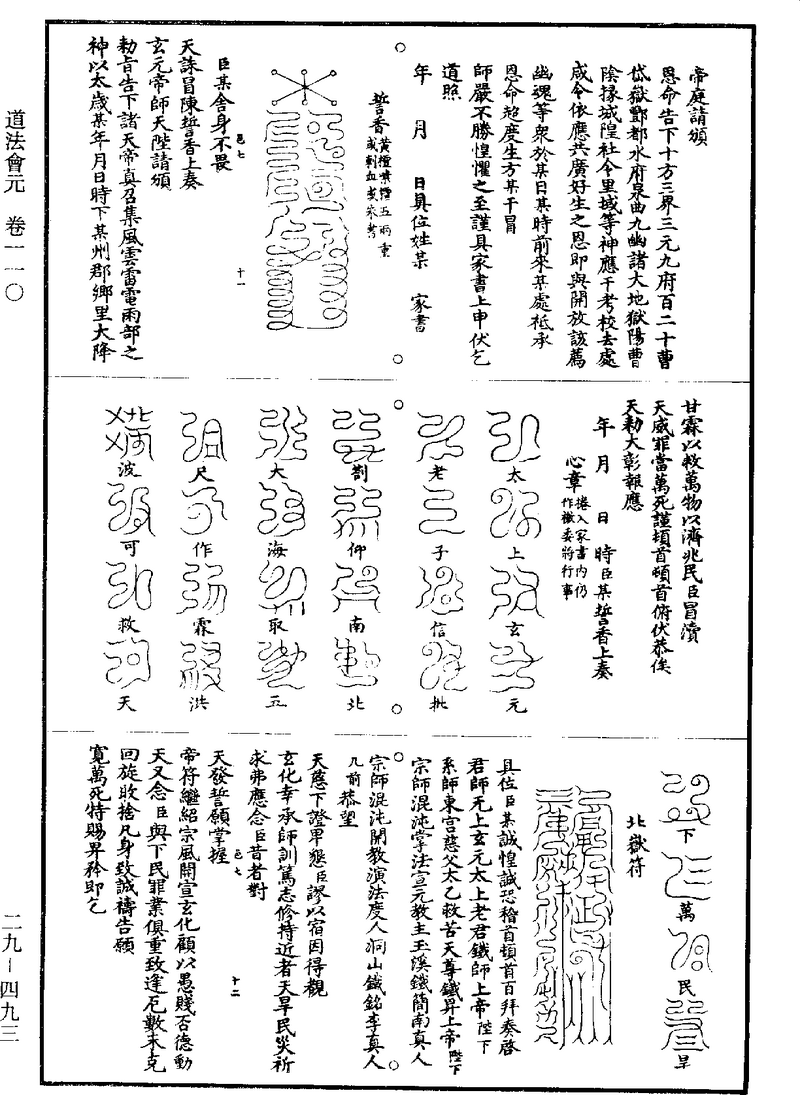 道法會元　卷一一〇
帝庭請頒
恩命告下十方三界三元九府百二十曹
岱嶽酆都水府泉曲九幽諸大地獄陽曹
陰掾城隍社令里域等神應干考校去處
咸令依應共廣好生之恩即與開放該薦
幽魂等衆於某日某時前來某處祗承
恩命超度生方某干冒
師嚴不勝惶懼之至謹具家書上申伏乞
道照
年　月　日具位姓某　家書
誓香黃檀紫檀五兩重
或刺血或朱書
臣某舍身不畏
天誅冒陳誓香上奏
玄元帝師天陛請頒
勑旨告下諸天帝真召集風雲雷電雨部之
神以太歲某年月日時下某州郡鄉里大降
邑七　十一
甘霖以救萬物以濟兆民臣冒瀆
天威罪當萬死謹頓首頓首俯伏恭俟
天勑大彰報應
年　月　日　時臣某誓香上奏
心章捲入家書內仍
作檄委將行事
太上玄元
老子信批
劄仰南北
大海取五
尺作霖洪
波可救天
下萬民旱
北嶽符
具位臣某誠惶誠恐稽首頓首百拜奏啓
君師无上玄元太上老君鐵師上帝陛下
系師東宮慈父太乙救苦天尊鐵昇上帝陛下
宗師混沌掌法宣元教主玉溪鐵簡南真人
宗師混沌開教演法度人洞山鐵銘李真人
几前恭望
天慈下證畢懇臣謬以宿因得覩
玄化幸承師訓篤志修持近者天旱民災祈
求弗應念臣昔者對
天發誓願掌握
帝符繼紹宗風開宣玄化顧以愚賤否德動
天又念臣與下民罪業俱重致逢厄數未克
回旋敢捨凡身致誠禱告願
寬萬死特賜昇矜即乞
邑七　十二
二九－四九三